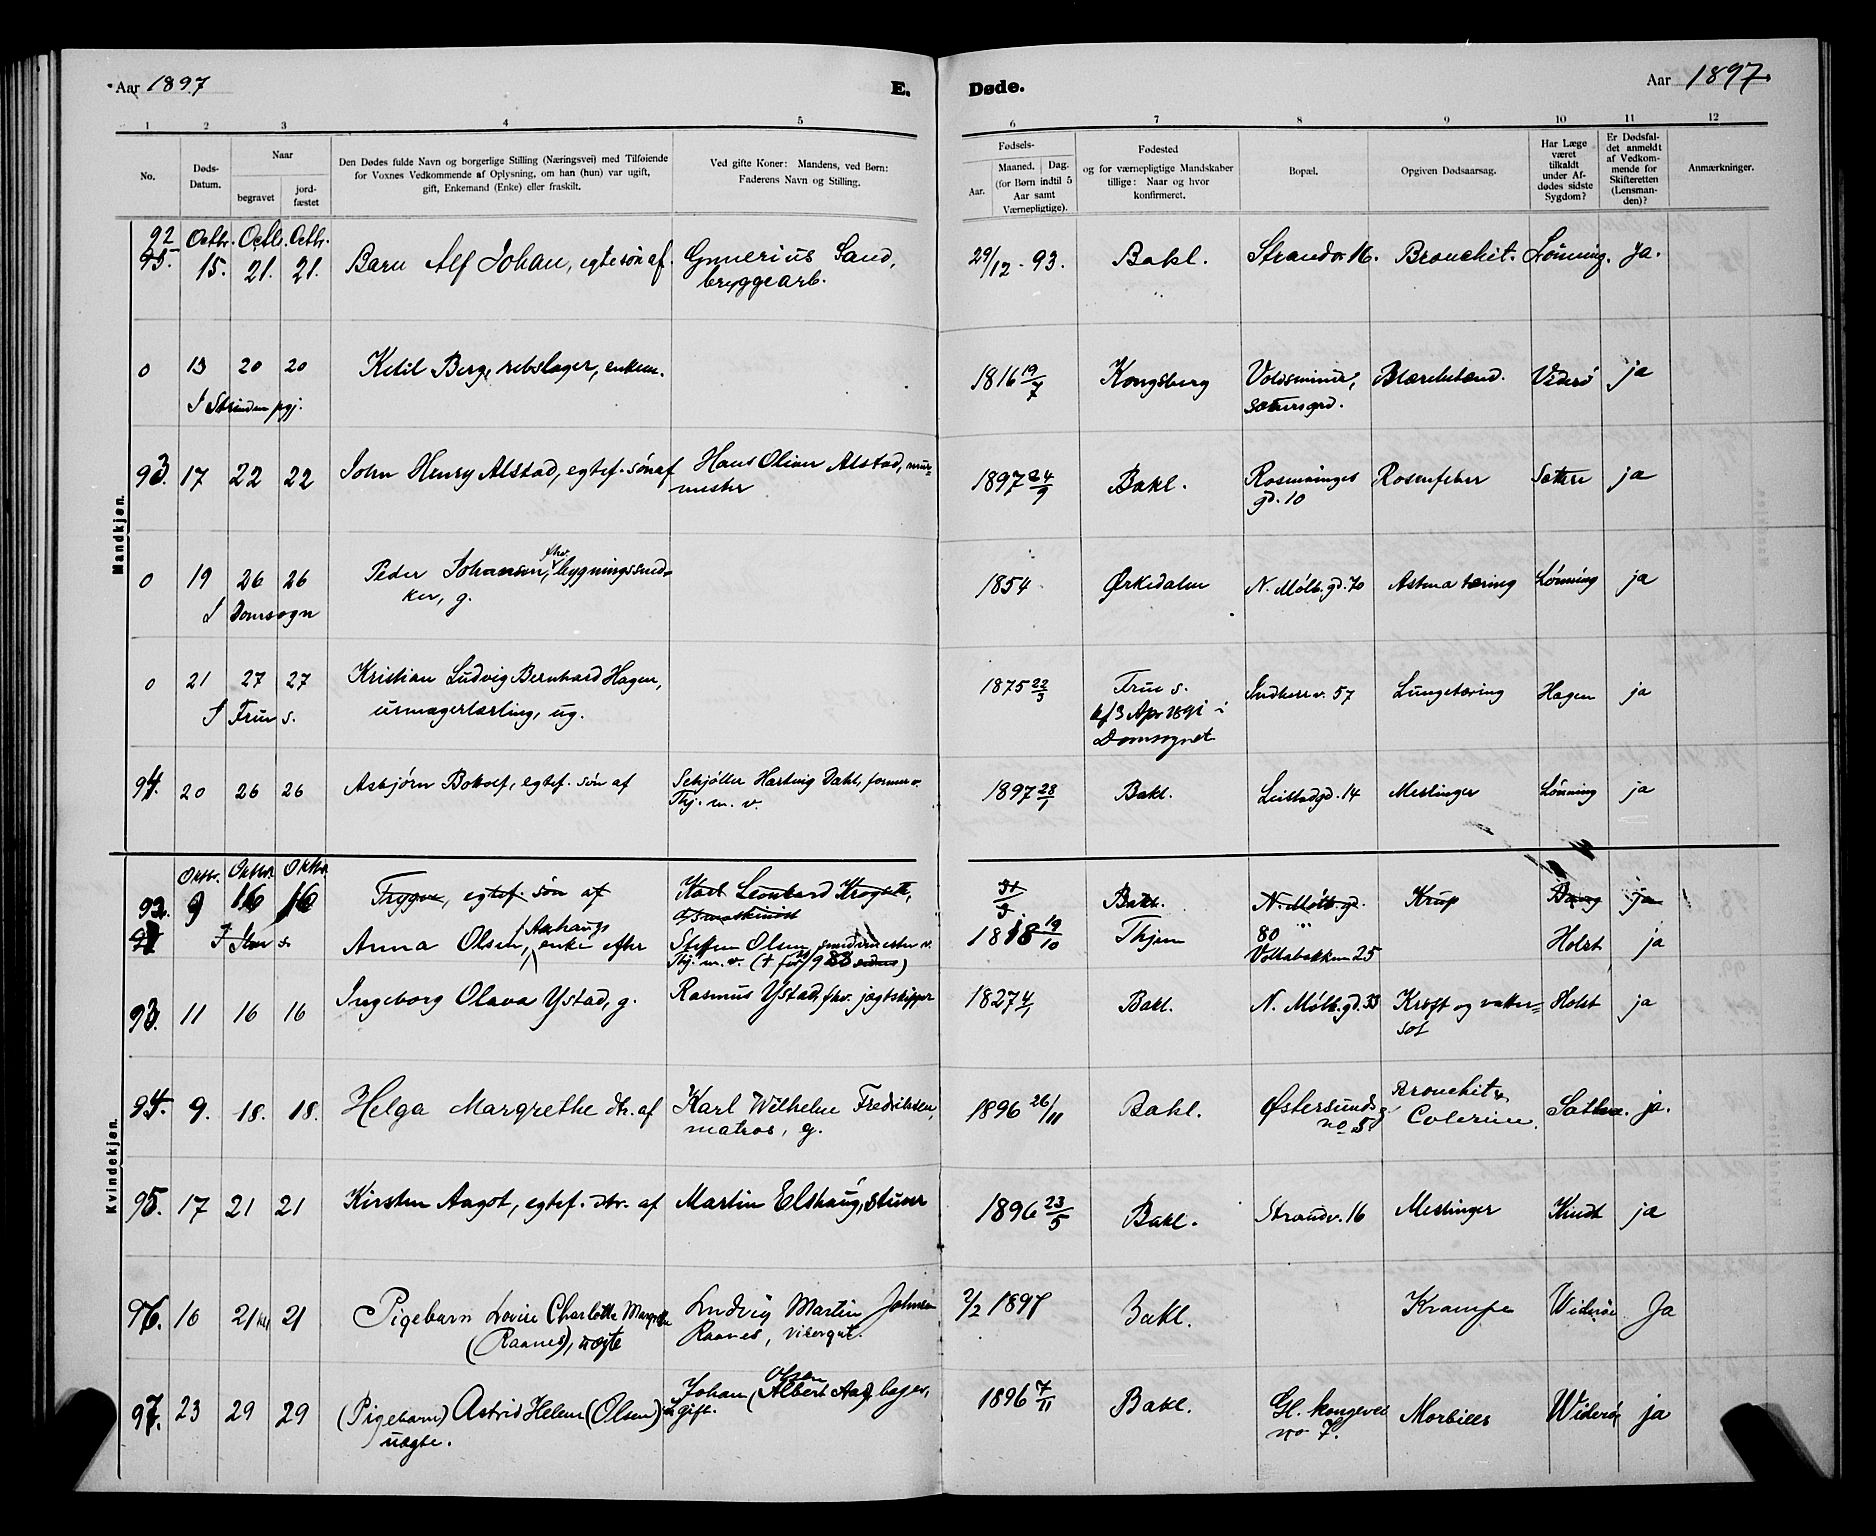 Aar 1897 E. Døde. Aar 1897.
1 2 3 4 5 6 7 8 9 10 11 12
No. Døds-Datum. Naar begravet jordfæstet
Den Dødes fulde Navn og borgerlige Stilling (Næringsvei) med Tilføiende
for Voxnes Vedkommende af Oplysning, om han (hun) var ugift,
gift, Enkemand (Enke) eller fraskilt.
Ved gifte Koner: Mandens, ved Børn:
Faderens Navn og Stilling.
Fødsels-
Aar. Maaned. Dag.
(for Børn indtil 5
Aar samt
Værnepligtige).
Fødested
og for værnepligtige Mandskaber
tillige: Naar og hvor
konfirmeret.
Bopæl.
Opgiven Dødsaarsag.
Har Læge
været
tilkaldt
under Af-
dødes sidste
Sygdom?
Er Dødsfal-
det anmeldt
af Vedkom-
mende for
Skifteretten
(Lensman-
den)?
Anmærkninger.
Mandkjøn.
92 Octbr. Octb. Octbr.
15. 21. 21. Barn Alf Johan, egte søn af Gunerius Sand, 29/12 - 93. Bakl. Strandv. 16. Bronchit. Lønning. ja.
bryggearb.
0 13 20 20 Ketil Berg, rebslager, enkem. 1816 19/7 Kongsberg Voldsminde, Blærebetænd. Viderø ja
I Strinden pgj. sætersgrd.
93. 17 22 22 John Henry Alstad, egtef. søn af Hans Oliver Alstad, mur- 1897 24/9 Bakl. Rosenborgs Rosenfeber Sæther ja
mester gd. 10
0 19 26 26 Peder Johansen, fhv. bygningssned- 1854 Ørkedalen N. Møllb. gd. 70 Astma tæring Lønning ja
I Domsogn ker, g.
0 21 27 27 Kristian Ludvig Bernhard Hagen, 1875 22/3 Frue s. Indherr v. 57 Lungetæring Hagen ja
I Frue s. urmagerlærling, ug. kf 3 Apr 1891 i
Domsognet
94. 20 26 26 Asbjørn Botolf, egtef. søn af Schjøller Hartvig Dahl, former v. 1897 28/1 Bakl. Leistadgd. 14 Meslinger Lønning ja
Thj. m. v.
Kvindekjøn.
Oktbr. Oktbr. Oktbr.
92. 9 16 16 Trygve, egtef. søn af Karl Leonhard Krogseth, Bakl. N. Møllb. gd. Krup ja
I Ilen s. Anna Olsen, Aarhaugs enke efter Steffen Olsen, smedmester v. 1818 19/10 Thjem 80 Holst ja
Thj. m. v. Voldabakken 25
93. 11 16 16 Ingeborg Olava Ystad, g. Rasmus Ystad, fhv. jægtskipper 1827 4/1 Bakl. N. Møllb. gd. 33 Kræft og vatter- Holst ja
sot
94. 9. 18. 18. Helga Margrethe dtr. af Karl Wilhelm Fredriksen, 1896 26/11 Bakl. Østersundsg. Bronchit & Sæther. ja.
matros, g. no 5 Colerine.
95. 17 21 21 Kirsten Aagot, egtef. dtr. af Martin Elshaug, stuer 1896 23/5 Bakl. Strandv. 16 Meslinger Kindt ja
96. 16 21 21 Pigebarn Lovise Charlotte Margrethe Ludvig Martin Johnsen 2/2 1897 Bakl. Krampe Widerøe Ja
(Raanes), uægte Raanes, visergut.
97. 23 29 29 (Pigebarn) Astrid Helene (Olsen) Johan (Olsen) Albert Aas, bager, 1896 7/11 Bakl. Gl. kongevei Morbilli Widerøe ja
uægte. ugift. no 7.